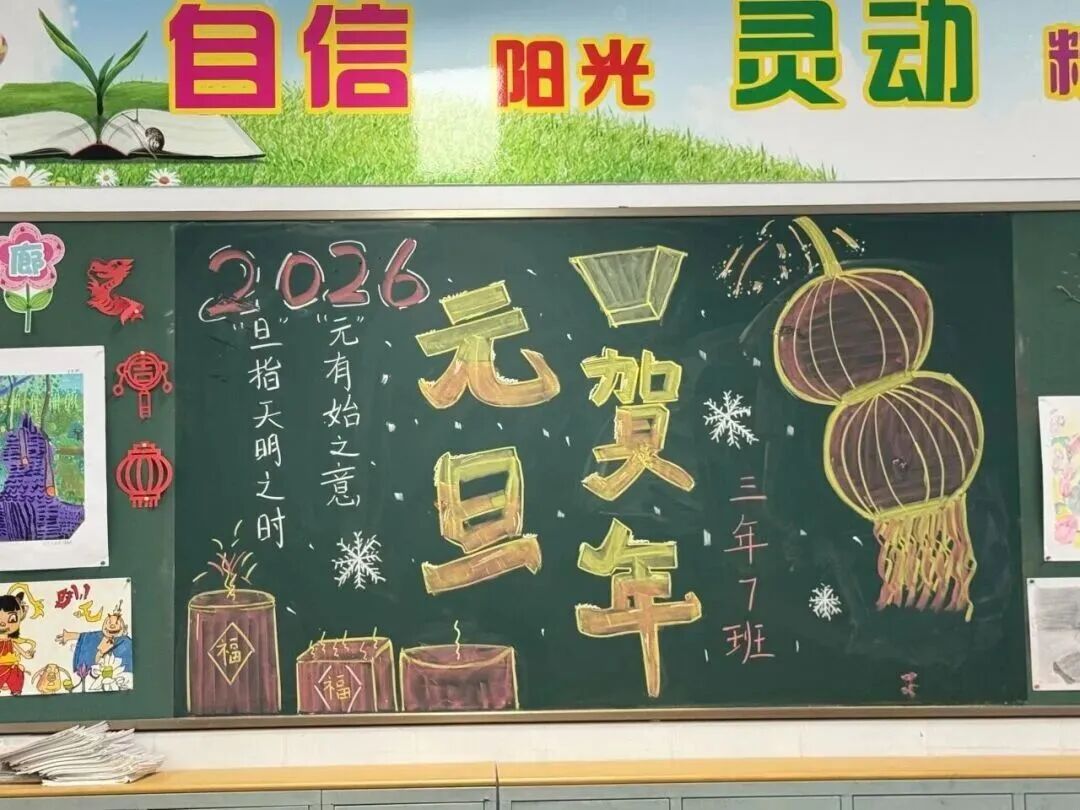 自信 阳光 灵动
廊
吉
2026
"元"有始之意
"旦"指天明之时
元旦
贺年
三年7班
福
福